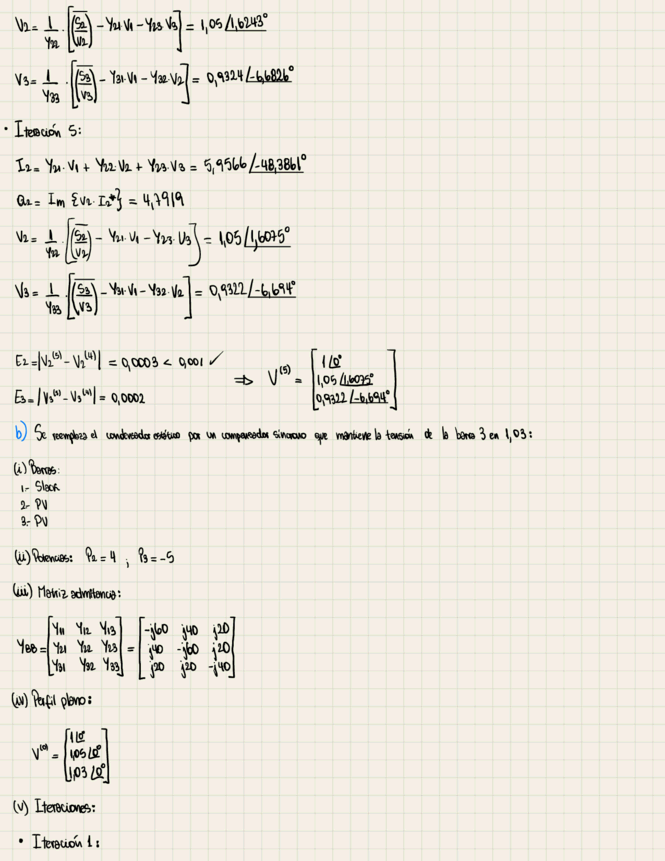 V2 = 1/Y22 · [(S2/V2)‾ − Y21·V1 − Y23·V3] = 1,05 /1,6243°
V3 = 1/Y33 · [(S3/V3)‾ − Y31·V1 − Y32·V2] = 0,9324 /-6,6826°
• Iteración 5:
I2 = Y21·V1 + Y22·V2 + Y23·V3 = 5,9566 /-48,3861°
Q2 = Im {V2·I2*} = 4,7919
V2 = 1/Y22 · [(S2/V2)‾ − Y21·V1 − Y23·V3] = 1,05 /1,6075°
V3 = 1/Y33 · [(S3/V3)‾ − Y31·V1 − Y32·V2] = 0,9322 /-6,694°
E2 = |V2⁽⁵⁾ − V2⁽⁴⁾| = 0,0003 < 0,001 ✓
E3 = |V3⁽⁵⁾ − V3⁽⁴⁾| = 0,0002
⇒ V⁽⁵⁾ = [1 /0°
1,05 /1,6075°
0,9322 /-6,694°]
b) Se reemplaza el condensador estático por un compensador síncrono que mantiene la tensión de la barra 3 en 1,03:
(i) Barras:
1.- Slack
2.- PV
3.- PV
(ii) Potencias: P2 = 4 ; P3 = -5
(iii) Matriz admitancia:
YBB = [Y11 Y12 Y13] = [-j60 j40 j20]
[Y21 Y22 Y23] [j40 -j60 j20]
[Y31 Y32 Y33] [j20 j20 -j40]
(iv) Perfil plano:
V⁽⁰⁾ = [1 /0°
1,05 /0°
1,03 /0°]
(v) Iteraciones:
• Iteración 1: